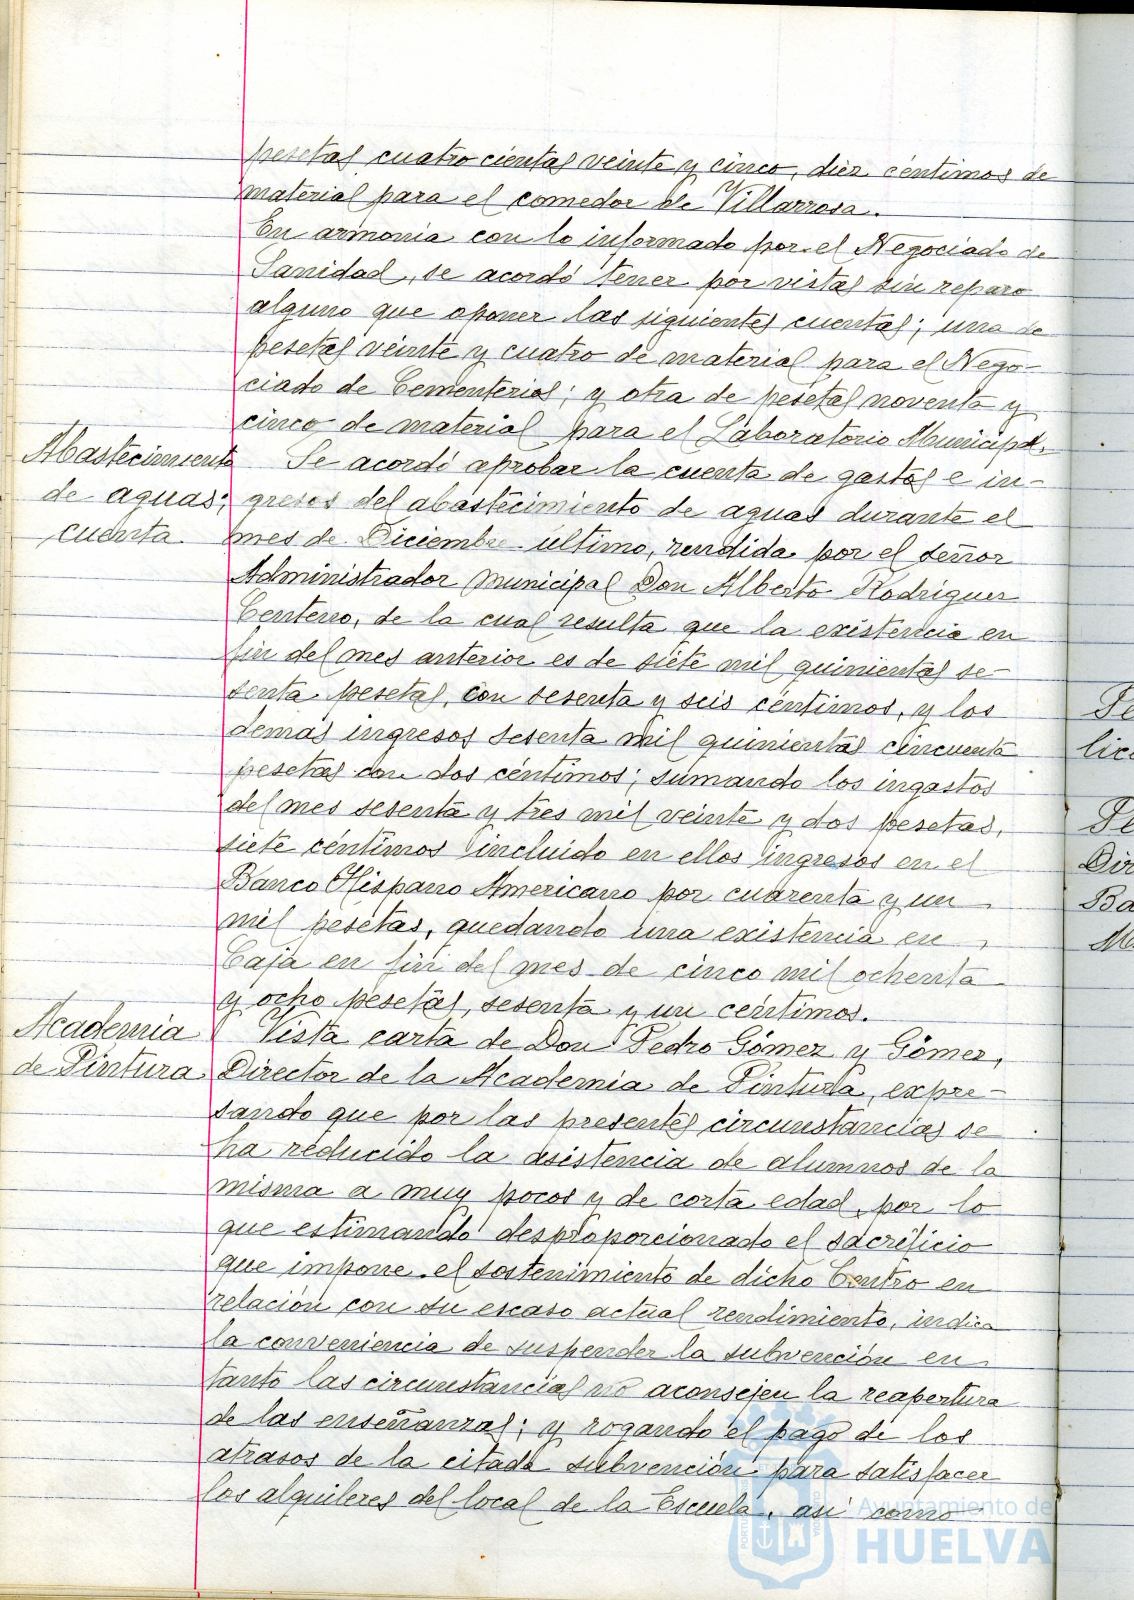 pesetas cuatrocientas veinte y cinco, diez céntimos de
material para el comedor de Villarrosa.
En armonia con lo informado por el Negociado de
Sanidad, se acordó tener por vistas sin reparo
alguno que oponer las siguientes cuentas; una de
pesetas veinte y cuatro de material para el Nego-
ciado de Cementerios; y otra de pesetas noventa y
cinco de material para el Laboratorio Municipal.
Abastecimiento
de aguas;
cuenta.
Se acordó aprobar la cuenta de gastos e in-
gresos del abastecimiento de aguas durante el
mes de Diciembre último, rendida por el señor
Administrador municipal Don Alberto Rodriguez
Centeno, de la cual resulta que la existencia en
fin del mes anterior es de siete mil quinientas se-
senta pesetas, con sesenta y seis céntimos, y los
demás ingresos sesenta mil quinientas cincuenta
pesetas con dos céntimos; sumando los ingastos
del mes sesenta y tres mil veinte y dos pesetas,
siete céntimos incluido en ellos ingresos en el
Banco Hispano Americano por cuarenta y un
mil pesetas, quedando una existencia en
Caja en fin del mes de cinco mil ochenta
y ocho pesetas, sesenta y un céntimos.
Academia
de Pintura
Vista carta de Don Pedro Gómez y Gómez,
Director de la Academia de Pintura, expre-
sando que por las presentes circunstancias se
ha reducido la asistencia de alumnos de la
misma a muy pocos y de corta edad, por lo
que estimando desproporcionado el sacrificio
que impone el sostenimiento de dicho Centro en
relación con su escaso actual rendimiento, indica
la conveniencia de suspender la subvención en
tanto las circunstancias no aconsejen la reapertura
de las enseñanzas; y rogando el pago de los
atrasos de la citada subvención para satisfacer
los alquileres del local de la Escuela, así como
Ayuntamiento de
HUELVA
Pe
lic
Pe
Dir
Ba
M